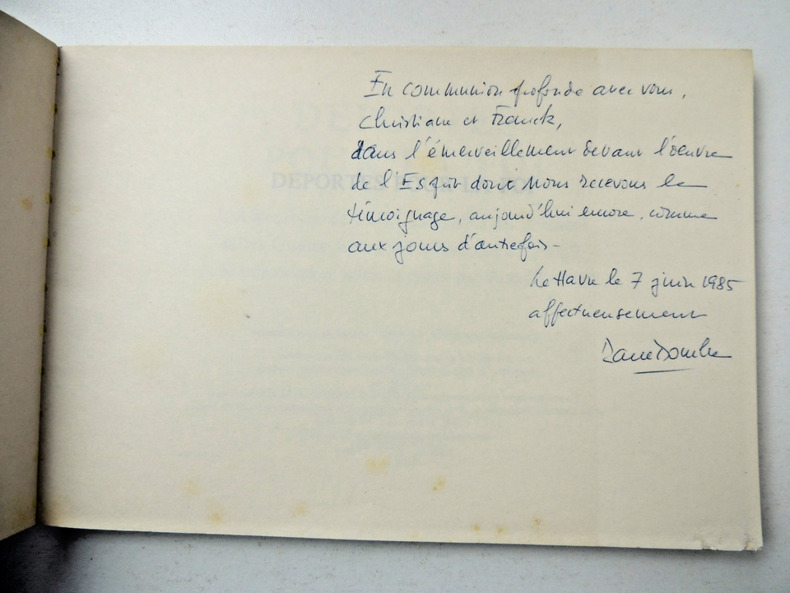 En communion profonde avec vous,
Christiane et Franck,
dans l'émerveillement devant l'oeuvre
de l'Esprit dont nous recevons le
témoignage, aujourd'hui encore, comme
aux jours d'autrefois -
Le Havre le 7 juin 1985
affectueusement